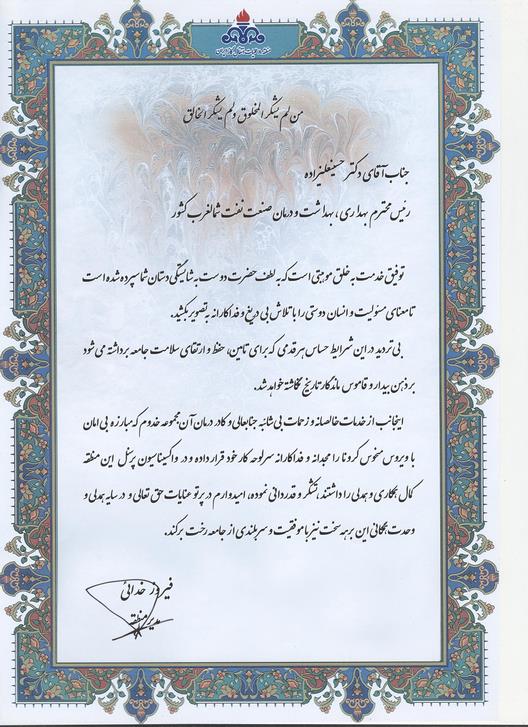 من لم یشکر المخلوق ولم یشکر الخالق
جناب آقای دکتر حسینعلیزاده
رئیس محترم بهداری، بهداشت و درمان صنعت نفت شمالغرب کشور
توفیق خدمت به خلق موهبتی است که به لطف حضرت دوست به شایستگی دستان شما سپرده شده است
تا معنای مسئولیت و انسان دوستی را با تلاش بی دریغ و فداکارانه به تصویر بکشید.
بی تردید در این شرایط حساس هر قدمی که برای تامین، حفظ و ارتقای سلامت جامعه برداشته می شود
بر ذهن بیدار و قاموس ماندگار تاریخ نگاشته خواهد شد.
اینجانب از خدمات خالصانه و زحمات بی شائبه جنابعالی و کادر درمان آن مجموعه خدوم که مبارزه بی امان
با ویروس منحوس کرونا را مجدانه و فداکارانه سرلوحه کار خود قرار داده و در واکسیناسیون پرسنل این منطقه
کمال همکاری و همدلی را داشتند، تشکر و قدردانی نموده، امیدوارم در پرتو عنایات حق تعالی و در سایه همدلی و
وحدت همگانی این برهه سخت نیز با موفقیت و سربلندی از جامعه رخت برکند.
فیروز خدائی
مدیر منطقه